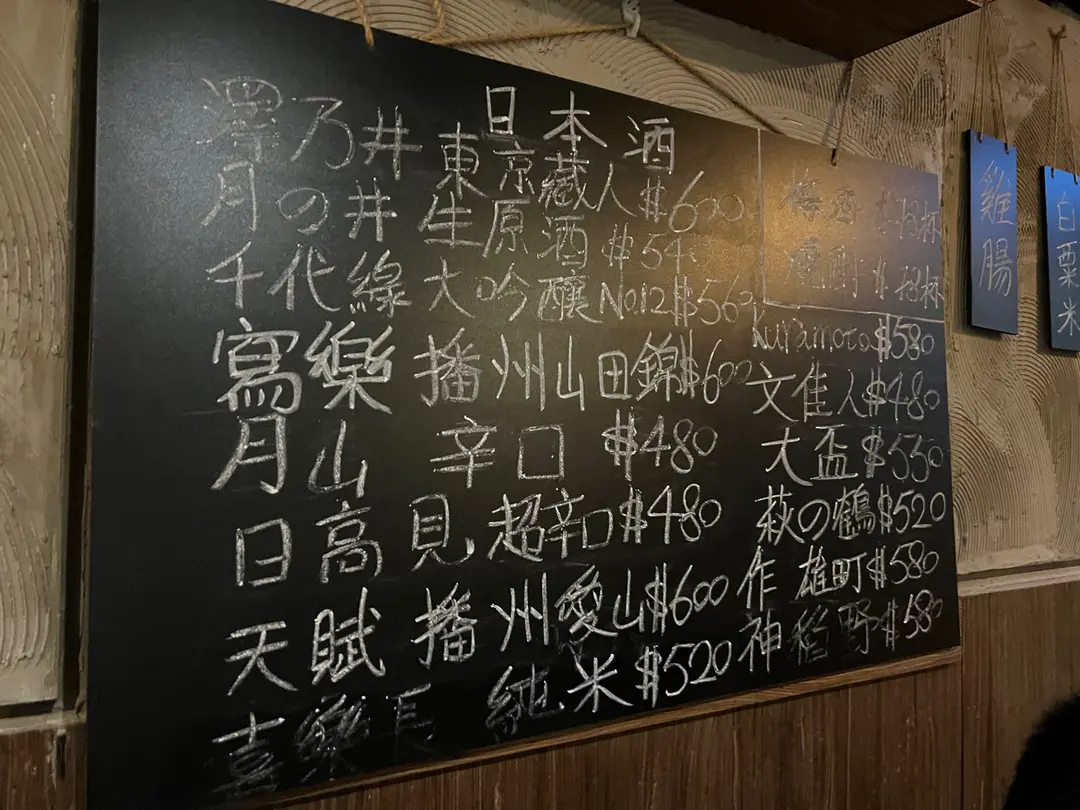 日本酒
澤乃井 東京藏人 $600
月の井 生原酒 $54
千代線 大吟釀 No12 $560
寫樂 播州山田錦 $600
月山 辛口 $480
日高見 超辛口 $480
天賦 播州愛山 $600
喜樂長 純米 $520
梅酒 $ 48杯
$ 48杯
Kuramoto $580
文佳人 $480
大盃 $550
萩の鶴 $520
作 雄町 $580
神稻 野 $
雞腸
白粟米